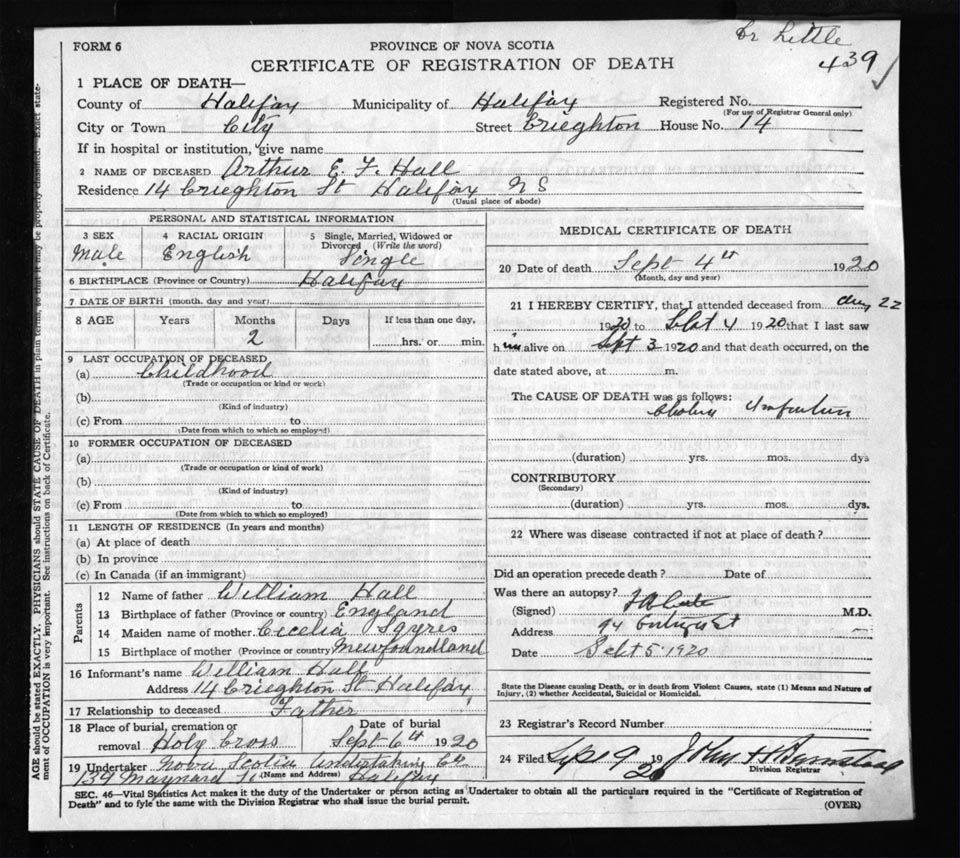 Dr Little
FORM 6
PROVINCE OF NOVA SCOTIA
439
CERTIFICATE OF REGISTRATION OF DEATH
1 PLACE OF DEATH—
County of Halifax Municipality of Halifax Registered No.
(For use of Registrar General only)
City or Town City Street Crieghton House No. 14
If in hospital or institution, give name
2 NAME OF DECEASED Arthur E. F. Hall
Residence 14 Crieghton St Halifax N S
(Usual place of abode)
PERSONAL AND STATISTICAL INFORMATION
3 SEX 4 RACIAL ORIGIN 5 Single, Married, Widowed or
Divorced (Write the word)
Male English Single
6 BIRTHPLACE (Province or Country) Halifax
7 DATE OF BIRTH (month, day and year)
8 AGE Years Months Days If less than one day,
2 hrs. or min.
9 LAST OCCUPATION OF DECEASED
(a) Childhood
(Trade or occupation or kind or work)
(b)
(Kind of industry)
(c) From to
(Date from which to which so employed)
10 FORMER OCCUPATION OF DECEASED
(a)
(Trade or occupation or kind of work)
(b)
(Kind of industry)
(c) From to
(Date from which to which so employed)
11 LENGTH OF RESIDENCE (In years and months)
(a) At place of death
(b) In province
(c) In Canada (if an immigrant)
Parents
12 Name of father William Hall
13 Birthplace of father (Province or country) England
14 Maiden name of mother Cicelia Sqyres
15 Birthplace of mother (Province or country) Newfoundland
16 Informant's name William Hall
Address 14 Crieghton St Halifax
17 Relationship to deceased Father
18 Place of burial, cremation or Date of burial
removal Holy Cross Sept 6th 1920
19 Undertaker Nova Scotia Undertaking Co
(Name and Address)
139 Maynard St Halifax
MEDICAL CERTIFICATE OF DEATH
20 Date of death Sept 4th 1920
(Month, day and year)
21 I HEREBY CERTIFY, that I attended deceased from Aug 22
1920 to Sept 4 1920 that I last saw
him alive on Sept 3 1920 and that death occurred, on the
date stated above, at m.
The CAUSE OF DEATH was as follows:
Cholera Infantum
(duration) yrs. mos. dys
CONTRIBUTORY
(Secondary)
(duration) yrs. mos. dys.
22 Where was disease contracted if not at place of death?
Did an operation precede death? Date of
Was there an autopsy?
(Signed) M.D.
Address 94 St
Date Sept 5 1920
State the Disease causing Death, or in death from Violent Causes, state (1) Means and Nature of
Injury, (2) whether Accidental, Suicidal or Homicidal.
23 Registrar's Record Number
24 Filed Sept 9 1920 John H Armstrong
Division Registrar
SEC. 46—Vital Statistics Act makes it duty of the Undertaker or person acting as Undertaker to obtain all the particulars required in the "Certificate of Registration of
Death" and to fyle the same with the Division Registrar who shall issue the burial permit.
(OVER)
AGE should be stated EXACTLY. PHYSICIANS should STATE CAUSE OF DEATH in plain terms, so that it may be properly classified. Exact state-
ment of OCCUPATION is very important. See instructions on back of Certificate.